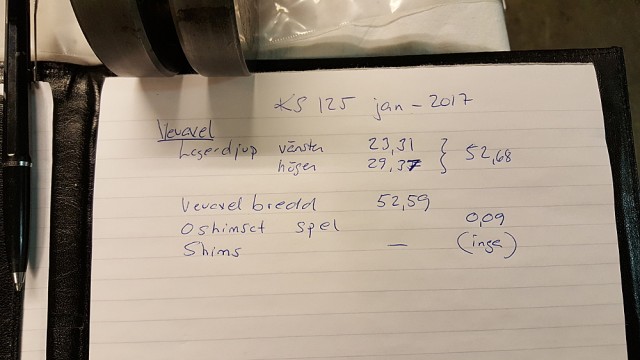 KS 125 jan - 2017
Vevaxel
Lagerdjup vänster 23,31
höger 29,37 } 52,68
Vevaxel bredd 52,59
Oshimset spel 0,09
Shims — (inga)